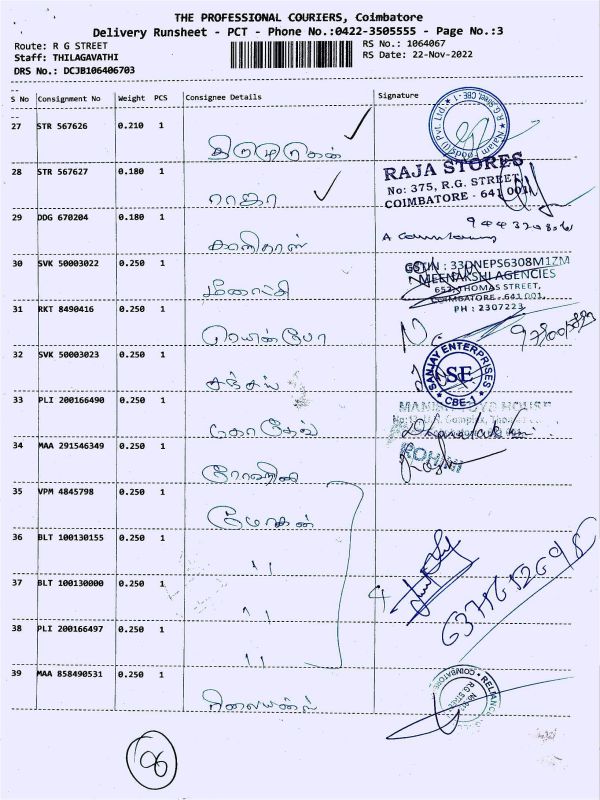 THE PROFESSIONAL COURIERS, Coimbatore
Delivery Runsheet - PCT - Phone No.:0422-3505555 - Page No.:3
Route: R G STREET
RS No.: 1064067
Staff: THILAGAVATHI
RS Date: 22-Nov-2022
DRS No.: DCJB106406703
S No Consignment No Weight PCS Consignee Details Signature
27 STR 567626 0.210 1
28 STR 567627 0.180 1 ராஜா
RAJA STORES
No: 375, R.G. STREET,
COIMBATORE - 641 001
29 DDG 670204 0.180 1 காளிதாஸ்
30 SVK 50003022 0.250 1 மீனாட்சி
GSTIN : 33DNEPS6308M1ZM
MEENAKSHI AGENCIES
653, THOMAS STREET,
COIMBATORE - 641 001.
PH : 2307223
31 RKT 8490416 0.250 1 ரெயின்போ
32 SVK 50003023 0.250 1 சஞ்சய்
SANJAY ENTERPRISES
SE
CBE-1
33 PLI 200166490 0.250 1
34 MAA 291546349 0.250 1 ரோஹினி
ROHINI
35 VPM 4845798 0.250 1 மோகன்
36 BLT 100130155 0.250 1 "
37 BLT 100130000 0.250 1 "
38 PLI 200166497 0.250 1 "
6371652698
39 MAA 858490531 0.250 1 ரிலையன்ஸ்
RELIANCE
R.G STREET
COIMBATORE